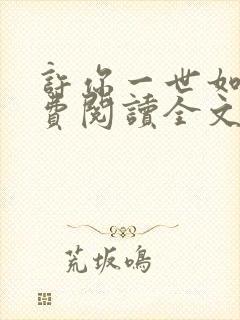 許你一世如
費閱讀全文
荒坂鳴